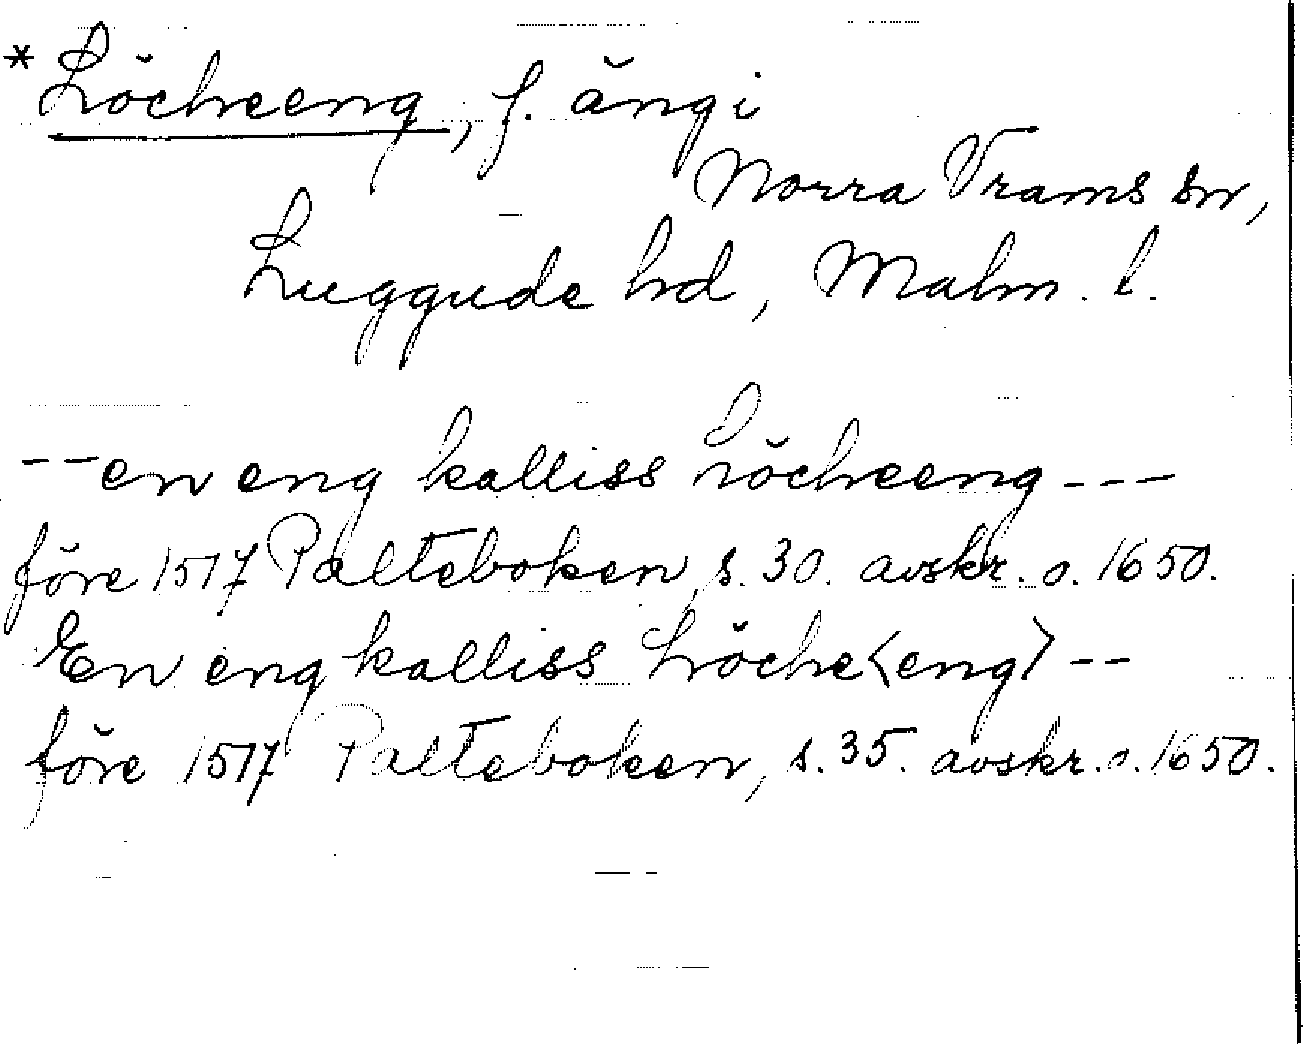 *Löcheeng, f. äng i
Norra Vrams sn,
Luggude hd, Malm. l.
--en eng kalliss Löcheeng---
före 1517 Palteboken s. 30. avskr. o. 1650.
En eng kalliss Löche<eng>--
före 1517 Palteboken, s. 35. avskr. o. 1650.